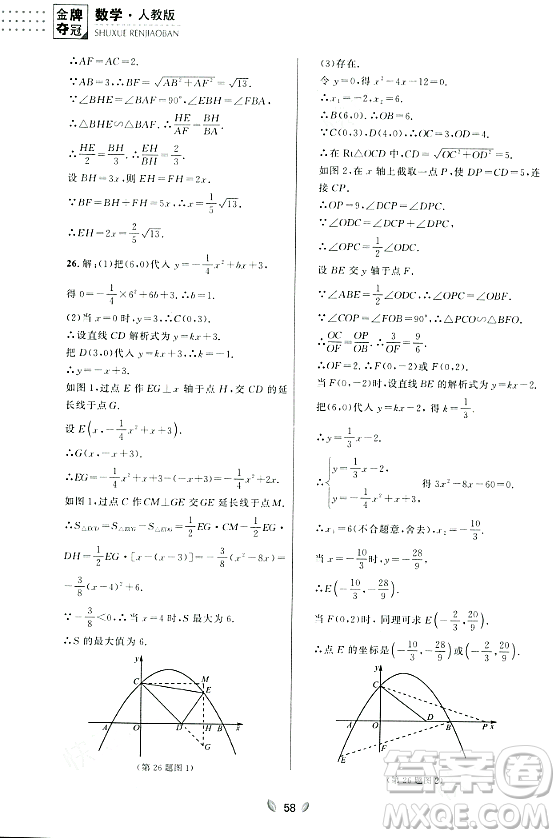 金牌
夺冠
数学·人教版
SHUXUE RENJIAOBAN
∴AF=AC=2.
∵AB=3, ∴BF=√(AB²+AF²)=√13.
∵∠BHE=∠BAF=90°, ∠EBH=∠FBA,
∴△BHE∽△BAF. ∴HE/AF=BH/BA.
∴HE/2=BH/3. ∴EH/BH=2/3.
设BH=3x,则EH=2x.
∴BE=√13x=1/5√13. ∴x=1/5.
∴EH=2x=2/5√13.
26.解:(1)把(6,0)代入y=-1/4x²+bx+3,
得0=-1/4×6²+6b+3. ∴b=1.
(2)当x=0时,y=3, ∴C(0,3).
∴设直线CD解析式为y=kx+3.
把D(3,0)代入得k=-1.
∴y=-x+3.
如图1,过点E作EG⊥x轴于点H,交CD的延
长线于点G.
设E(x,-1/4x²+x+3).
∴G(x,-x+3).
∴EG=-1/4x²+x+3-(-x+3)=-1/4x²+2x.
如图1,过点C作CM⊥GE交GE延长线于点M.
∴S△ECD=S△ECG-S△EDG=1/2EG·CM-1/2EG·
DH=1/2EG·[x-(x-3)]=-3/8(x²-8x)=
-3/8(x-4)²+6.
∵-3/8<0, ∴当x=4时,S最大为6.
∴S的最大值为6.
y
C
M
E
A
O
D
H
B
x
G
(第26题图1)
(3)存在.
令y=0,得x²-4x-12=0.
∴x₁=-2,x₂=6.
∴B(6,0).
∵C(0,3),D(4,0),
∴OC=3,OD=4.
∴在Rt△OCD中,CD=√(OC²+OD²)=5.
如图2,在x轴上截取一点P,使DP=CD=5,连
接CP.
∴OP=9,∠DCP=∠DPC.
∵∠ODC=∠DCP+∠DPC,
∴∠OPC=1/2∠ODC.
设BE交y轴于点F.
∵∠ABE=1/2∠ODC, ∴∠OPC=∠ABE.
∵∠COP=∠FOB=90°, ∴△CPO∽△FBO.
∴OC/OF=OP/OB. ∴3/OF=9/6.
∴OF=2. ∴F(0,2)或F(0,-2).
当F(0,-2)时,设直线BE的解析式为y=kx-2.
把(6,0)代入y=kx-2,得k=1/3.
∴y=1/3x-2.
得3x²-8x-60=0.
∴x₁=6(不合题意,舍去),x₂=-10/3.
当x=-10/3时,y=-28/9.
∴E(-10/3,-28/9).
当F(0,2)时,同理可求E(-2/3,20/9).
∴点E的坐标是(-10/3,-28/9)或(-2/3,20/9).
y
C
A
O
D
B
P
x
F
E
(第26题图2)
58
作业帮